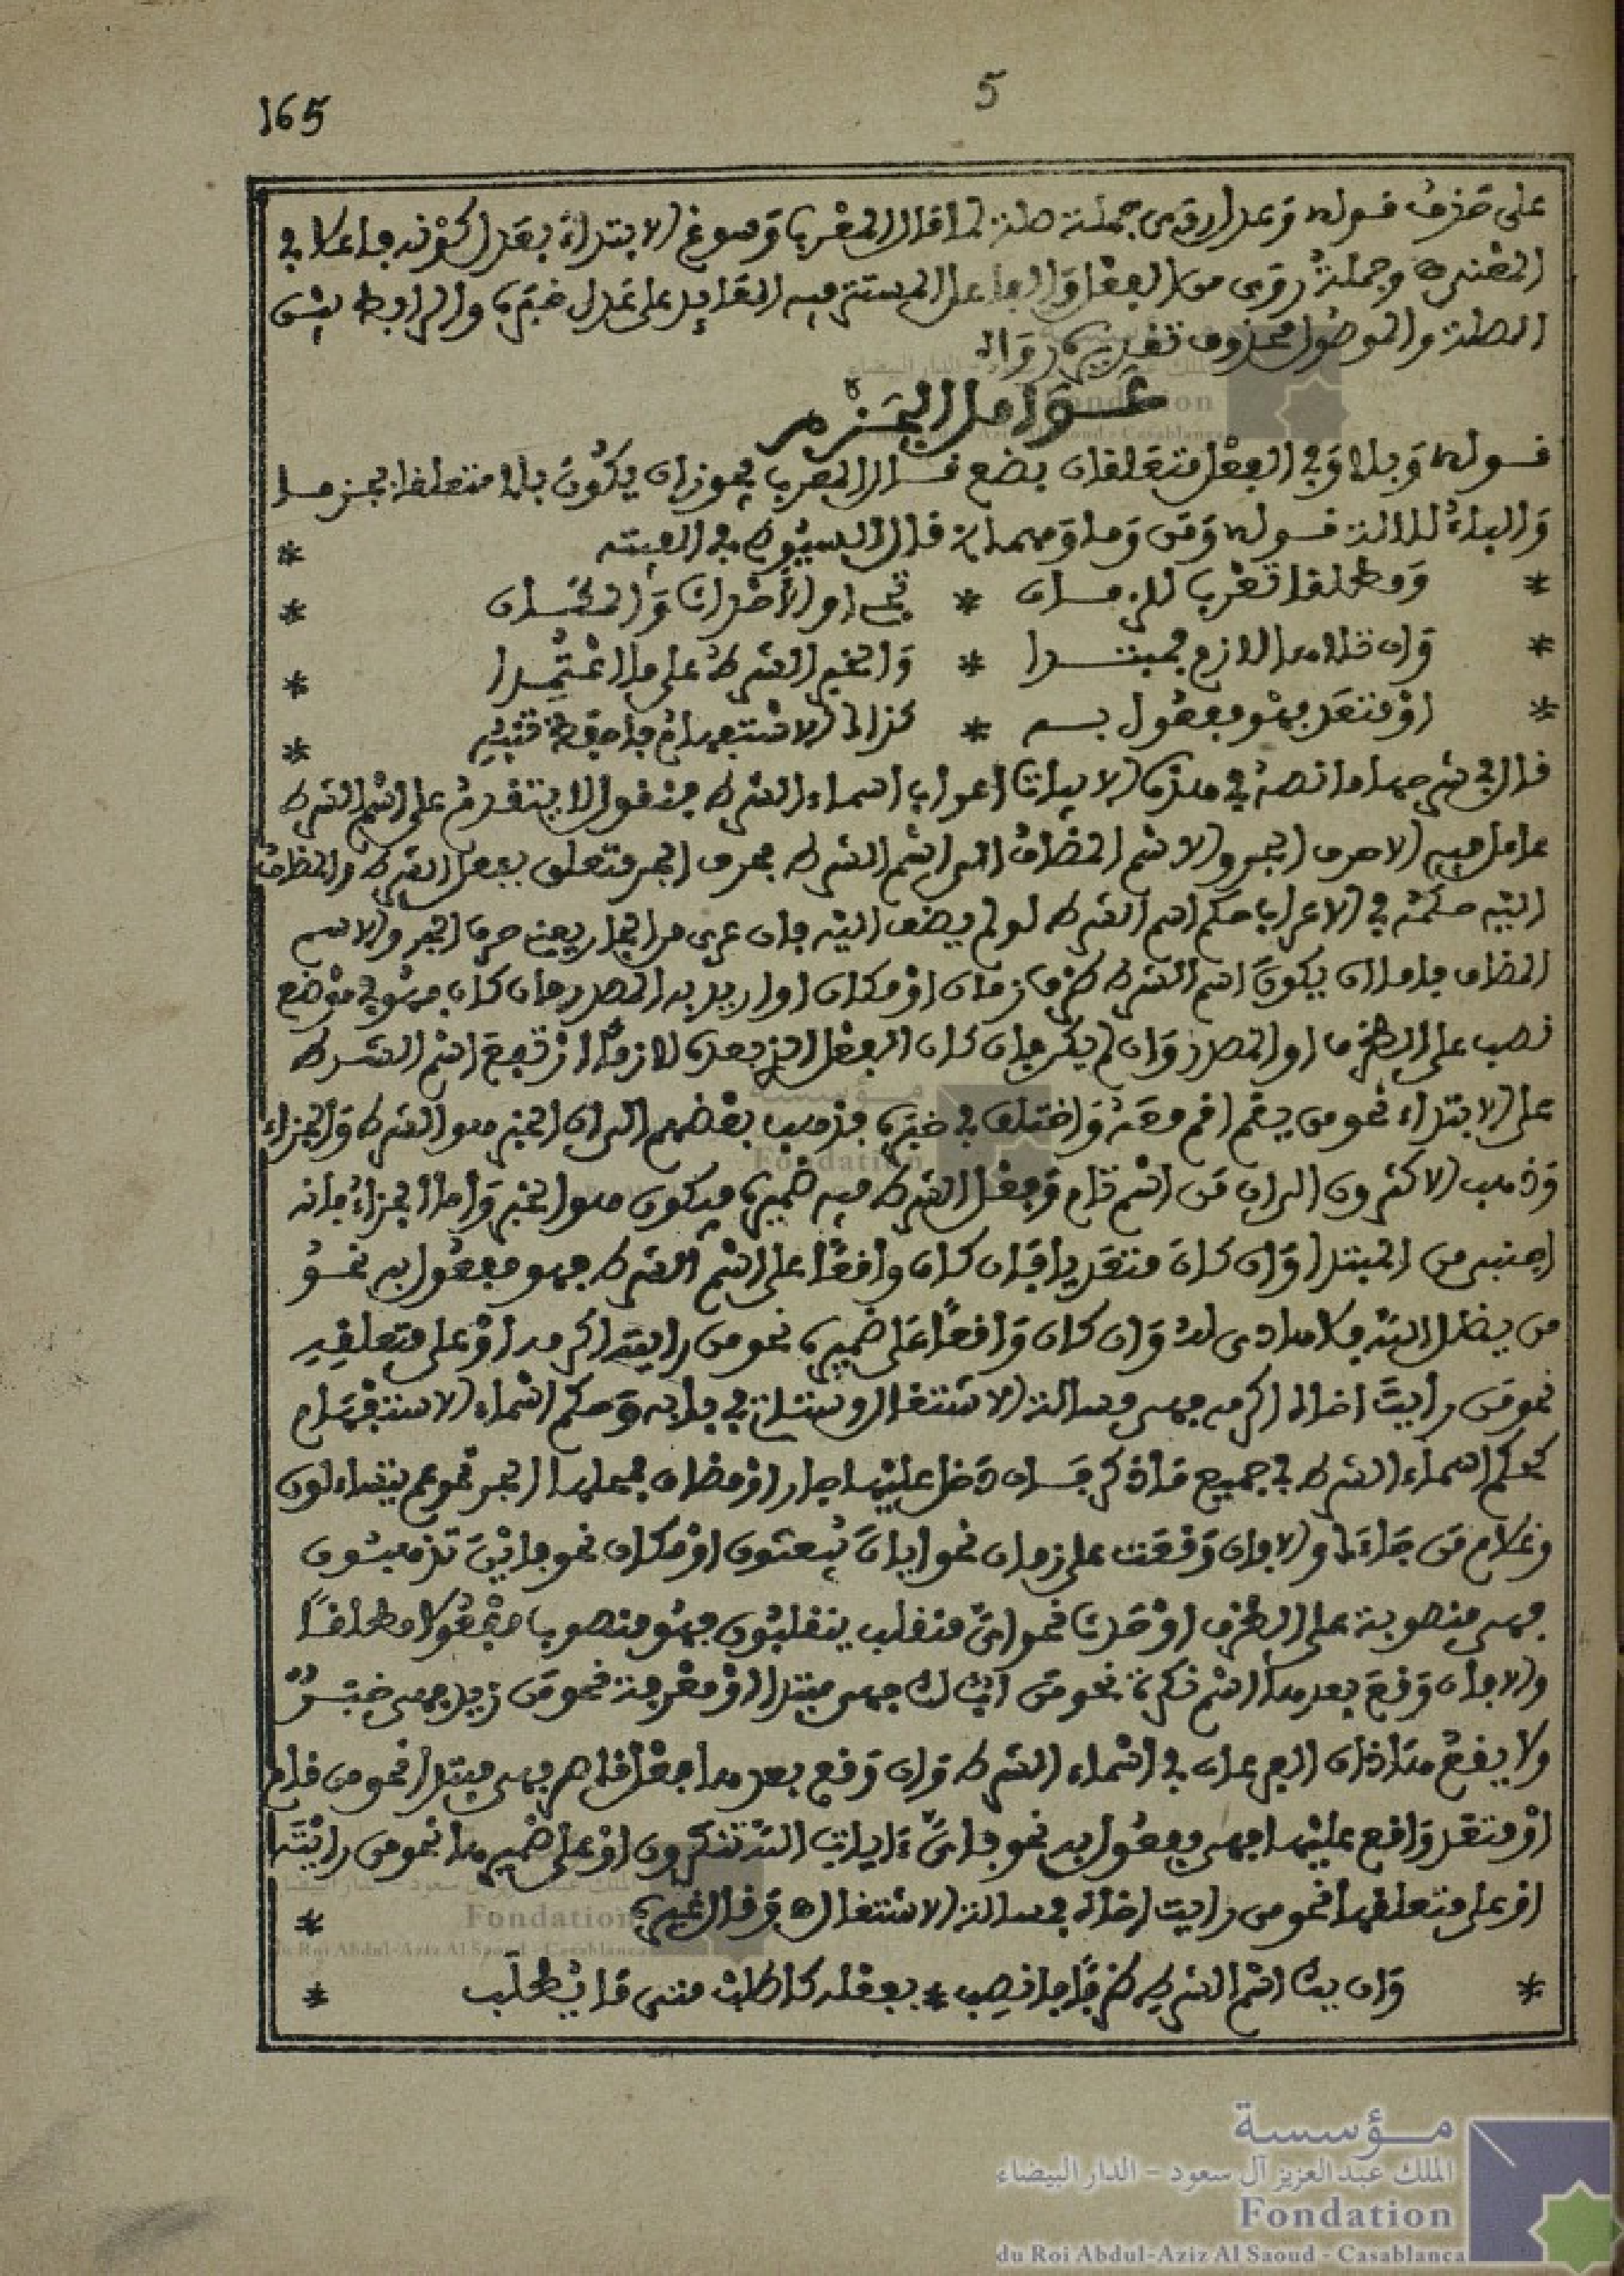 5
165
على حذف قوله وعدل روى جملة صلة لما قال المعرب وسوغ الابتداء بعدل كونه فاعلا في
المعنى وجملة روى من الفعل والفاعل المستتر فيه العايد على عدل خبره والرابط بين
الصلة والموصول محذوف تقديره رواه
عوامل الجزم
قوله وبلا وفي الفعل متعلقان بضع قال المعرب يجوز ان يكون بلا متعلقا بجزما
والباء للالة قوله ومن وما ومهما قال السيوطي في الفيته *
* ومطلقا تعرب للزمان * تجي او الاحداث والمكان *
* وان تلاها لازم فمبتدا * والخبر الشرط على ما اعتمدا *
* او متعد فهو مفعول به * كذاك الاستفهام فاحفظ تنتبه *
قال في شرحها ما نصه في هذه الابيات اعراب اسماء الشرط فنقول لا يتقدم على اسم الشرط
عامل فيه الا حرف الجر والاسم المضاف الى اسم الشرط فحرف الجر متعلق بفعل الشرط والمضاف
اليه حكمه في الاعراب حكم اسم الشرط لو لم يضف اليه فان عرى من الجار يعني حرف الجر والاسم
المضاف فاما ان يكون اسم الشرط ظرف زمان او مكان او اريد به المصدر فان كان فهو في موضع
نصب على الظرف او المصدر وان لم يكن فان كان الفعل الذي بعده لازما ارتفع اسم الشرط
على الابتداء نحو من يقم اقم معه واختلف في خبره فذهب بعضهم الى ان الخبر هو الشرط والجزاء
وذهب الاكثرون الى ان من اسم تام وفعل الشرط فيه ضميره فيكون هو الخبر واما الجزاء فانه
اجنبي من المبتدا وان كان متعديا فان كان واقعا على اسم الشرط فهو مفعول به نحو
من يضلل الله فلا هادي له وان كان واقعا على ضميره نحو من رايته اكرمه او على متعلقه
نحو من رايت اخاه اكرمه فهي مسالة الاشتغال وستاتي في بابه وحكم اسماء الاستفهام
كحكم اسماء الشرط في جميع ما ذكر فان دخل عليها جار او مضاف فمحلها الجر نحو عم يتساءلون
وغلام من جاءك والا فان وقعت على زمان نحو ايان يبعثون او مكان نحو فاين تذهبون
فهي منصوبة على الظرف او حدث نحو اي منقلب ينقلبون فهو منصوب مفعولا مطلقا
والا فان وقع بعدها اسم نكرة نحو من اب لك فهي مبتدا او معرفة نحو من زيد فهي خبر
ولا يقع هذان الفرعان في اسماء الشرط وان وقع بعدها فعل قاصر فهي مبتدا نحو من قام
او متعد واقع عليها فهي مفعول به نحو فاي ءايات الله تنكرون او على ضميرها نحو من رايته
او على متعلقها نحو من رايت اخاه فمسالة الاشتغال وقال غيره *
* وان يك اسم الشرط ظرفا فانصب * بفعله كاطلب متى ما يطلب *
مؤسسة
الملك عبد العزيز آل سعود - الدار البيضاء
Fondation
du Roi Abdul-Aziz Al Saoud - Casablanca